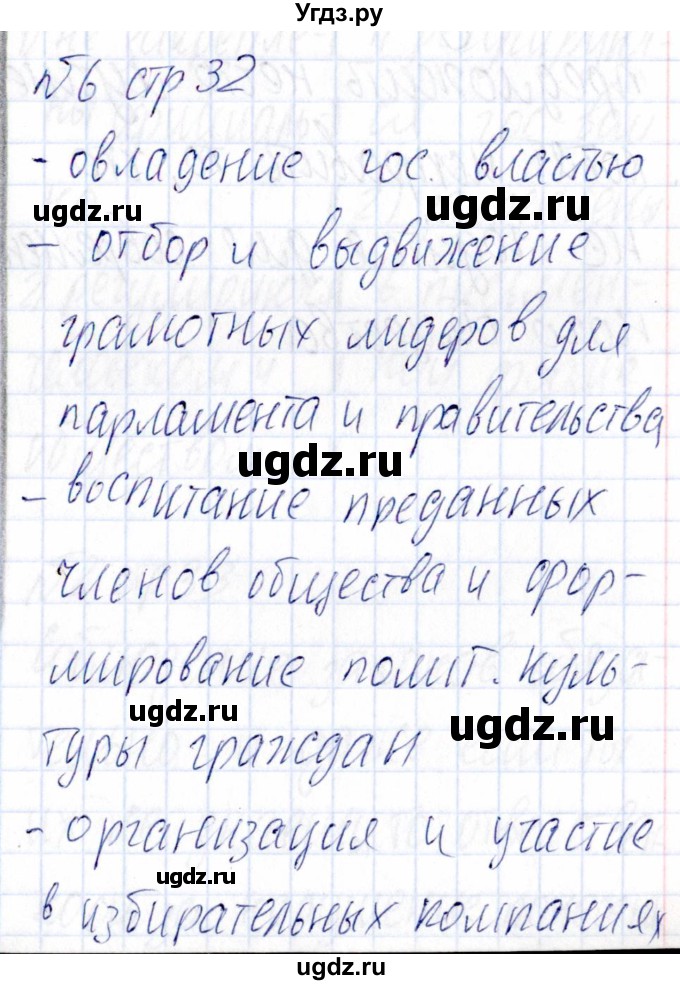 Угдз.ру
№6 стр 32
- овладение гос. властью
ugdz.ru
ugdz.ru
- отбор и выдвижение
грамотных лидеров для
парламента и правительства
ugdz.ru
- воспитание преданных
членов общества и фор-
мирование полит. куль-
ugdz.ru
ugdz.ru
туры граждан
- организация и участие
ugdz.ru
в избирательных компаниях
ugdz.ru